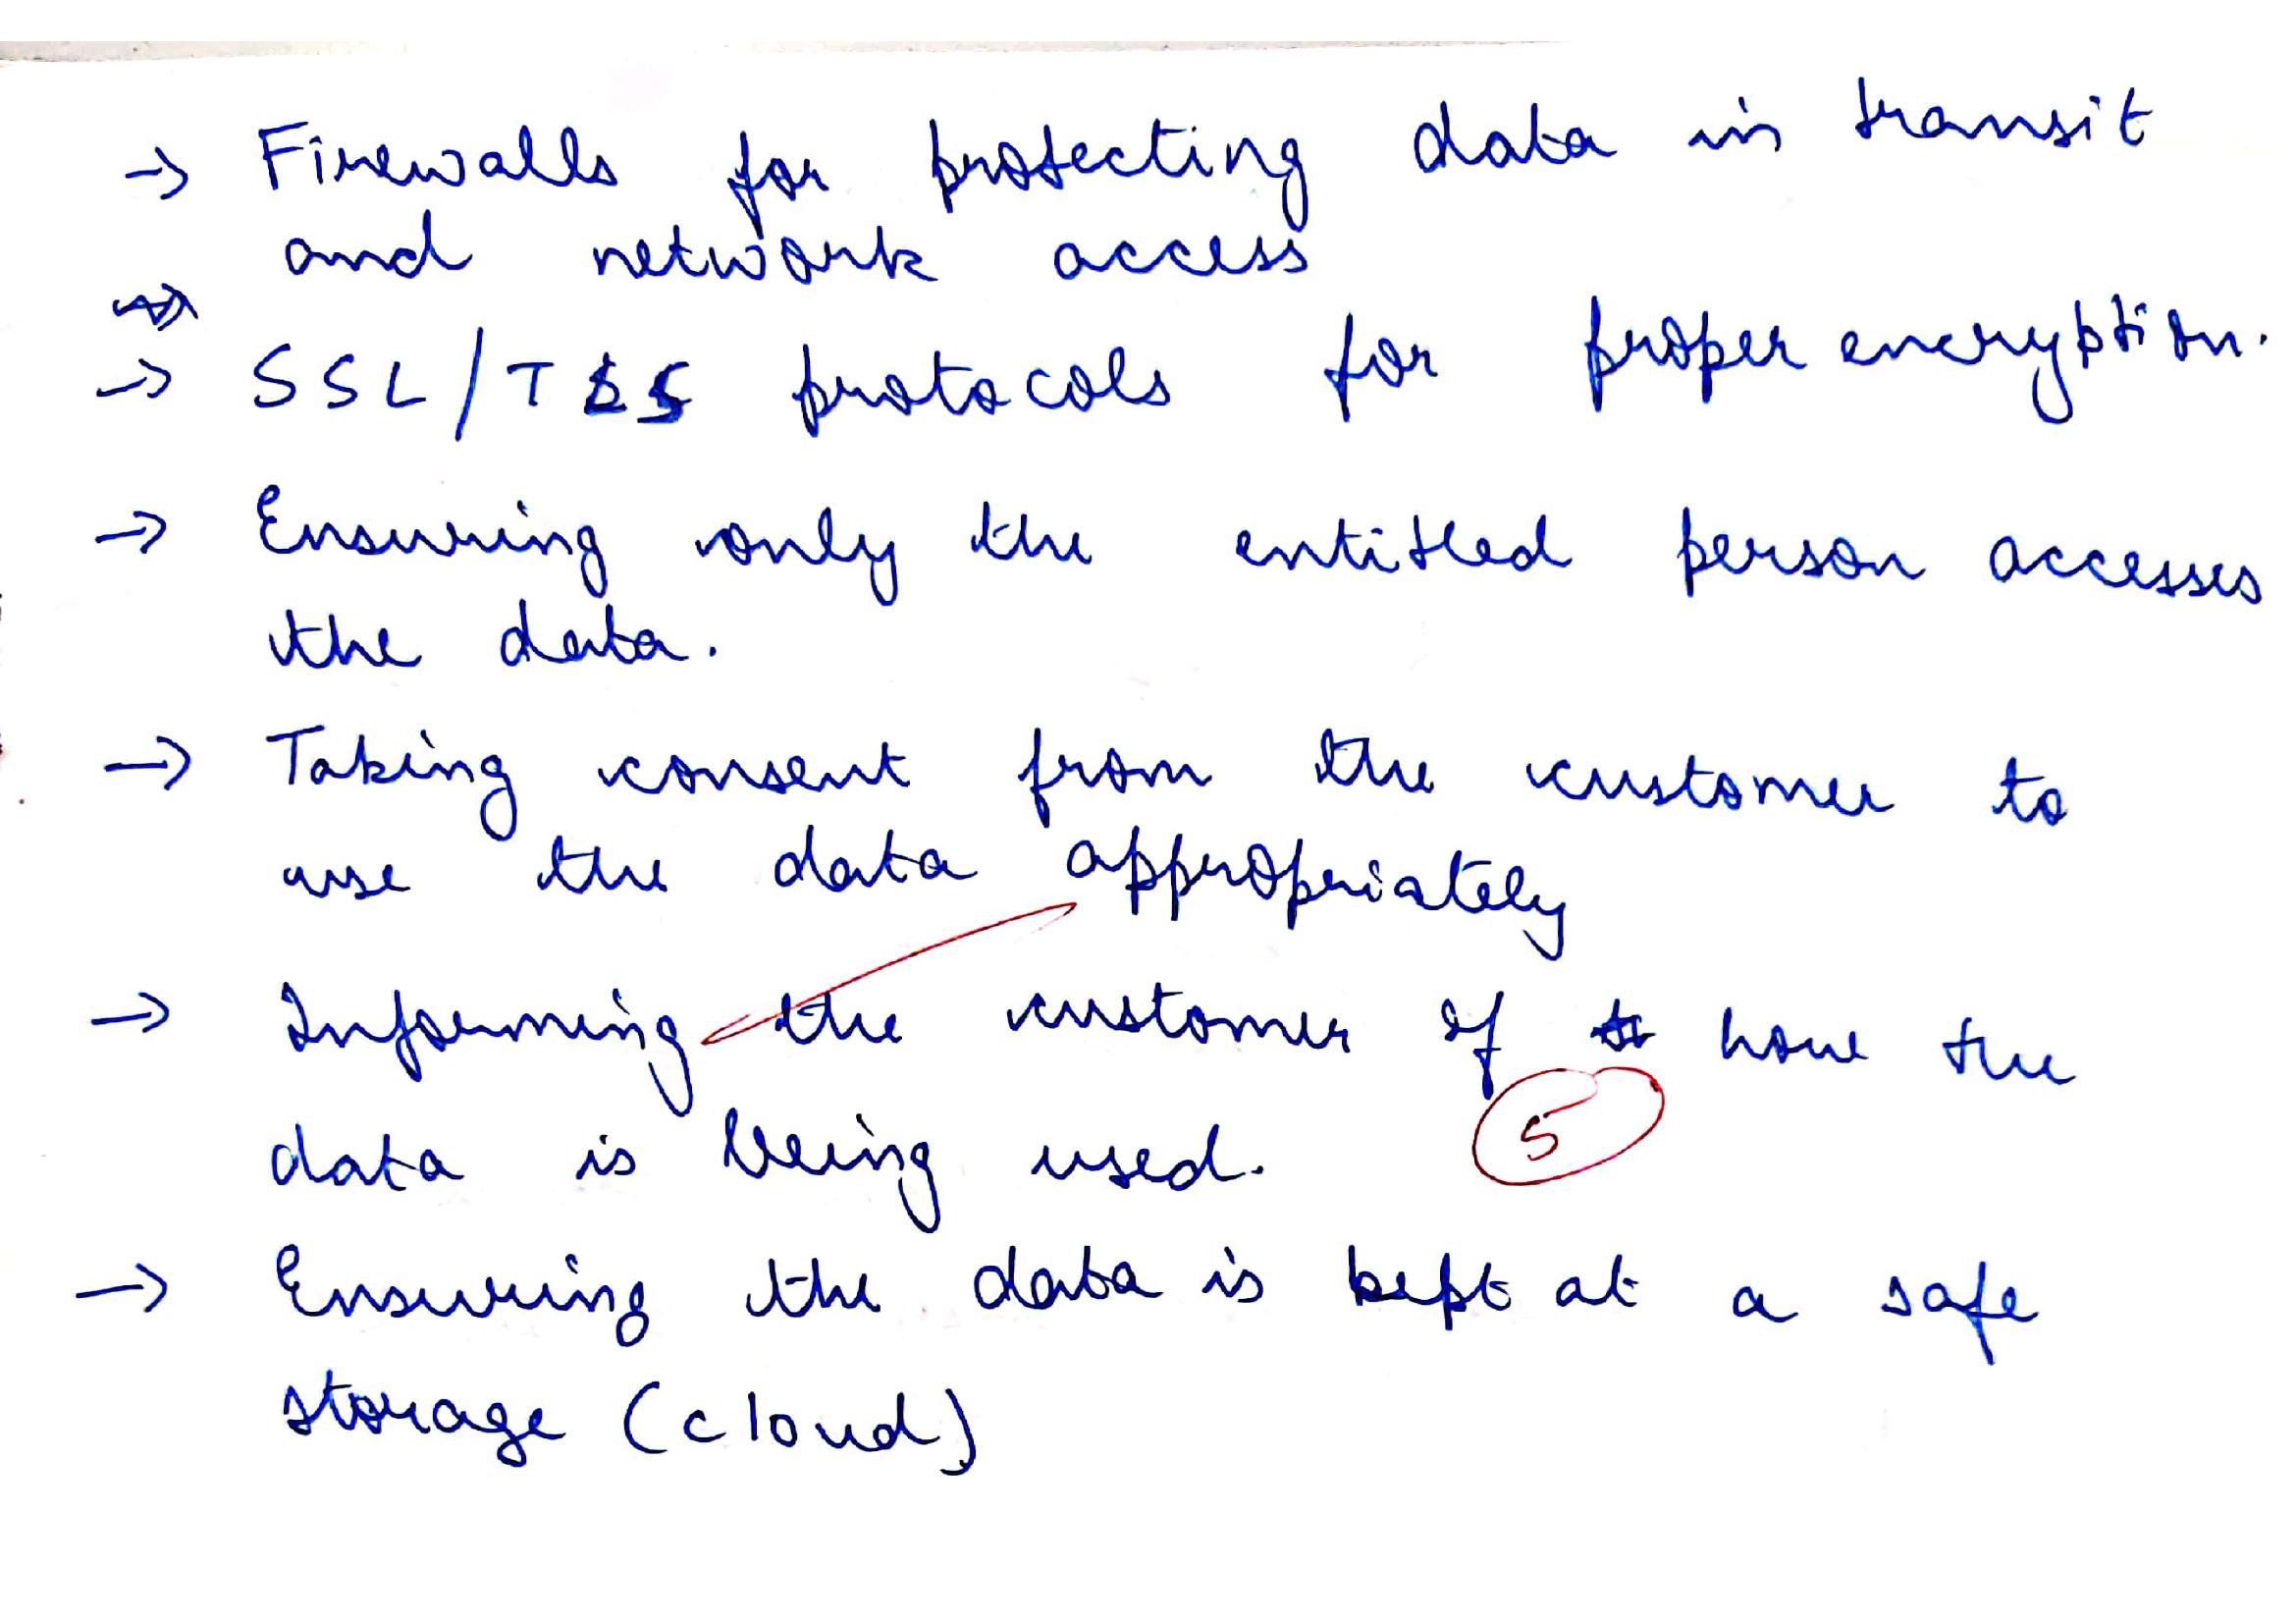 → Firewalls for protecting data in transit
and network access
→ SSL/TLS protocols for proper encryption.
→ Ensuring only the entitled person accesses
the data.
→ Taking consent from the customer to
use the data appropriately
→ Informing the customer if how the
data is being used.
5
→ Ensuring the data is kept at a safe
storage (cloud)